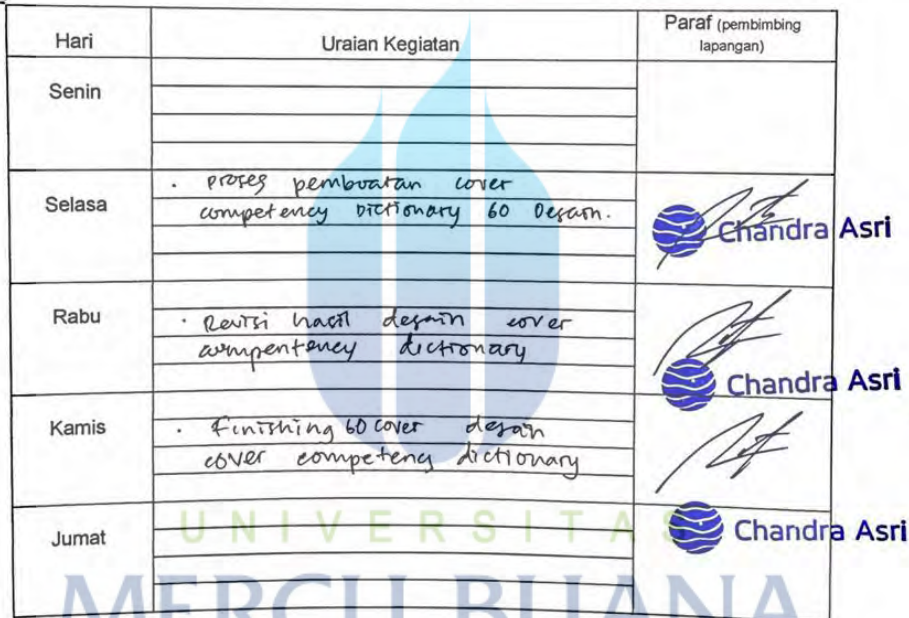 Hari
Uraian Kegiatan
Paraf (pembimbing
lapangan)
Senin
Selasa
. proses pembuatan cover
competency Dictionary 60 Desain.
Chandra Asri
Rabu
. Revisi hasil desain cover
compentency dictionary
Chandra Asri
Kamis
. Finishing 60 cover desain
cover competency dictionary
Jumat
Chandra Asri
UNIVERSITAS
MERCU BUANA